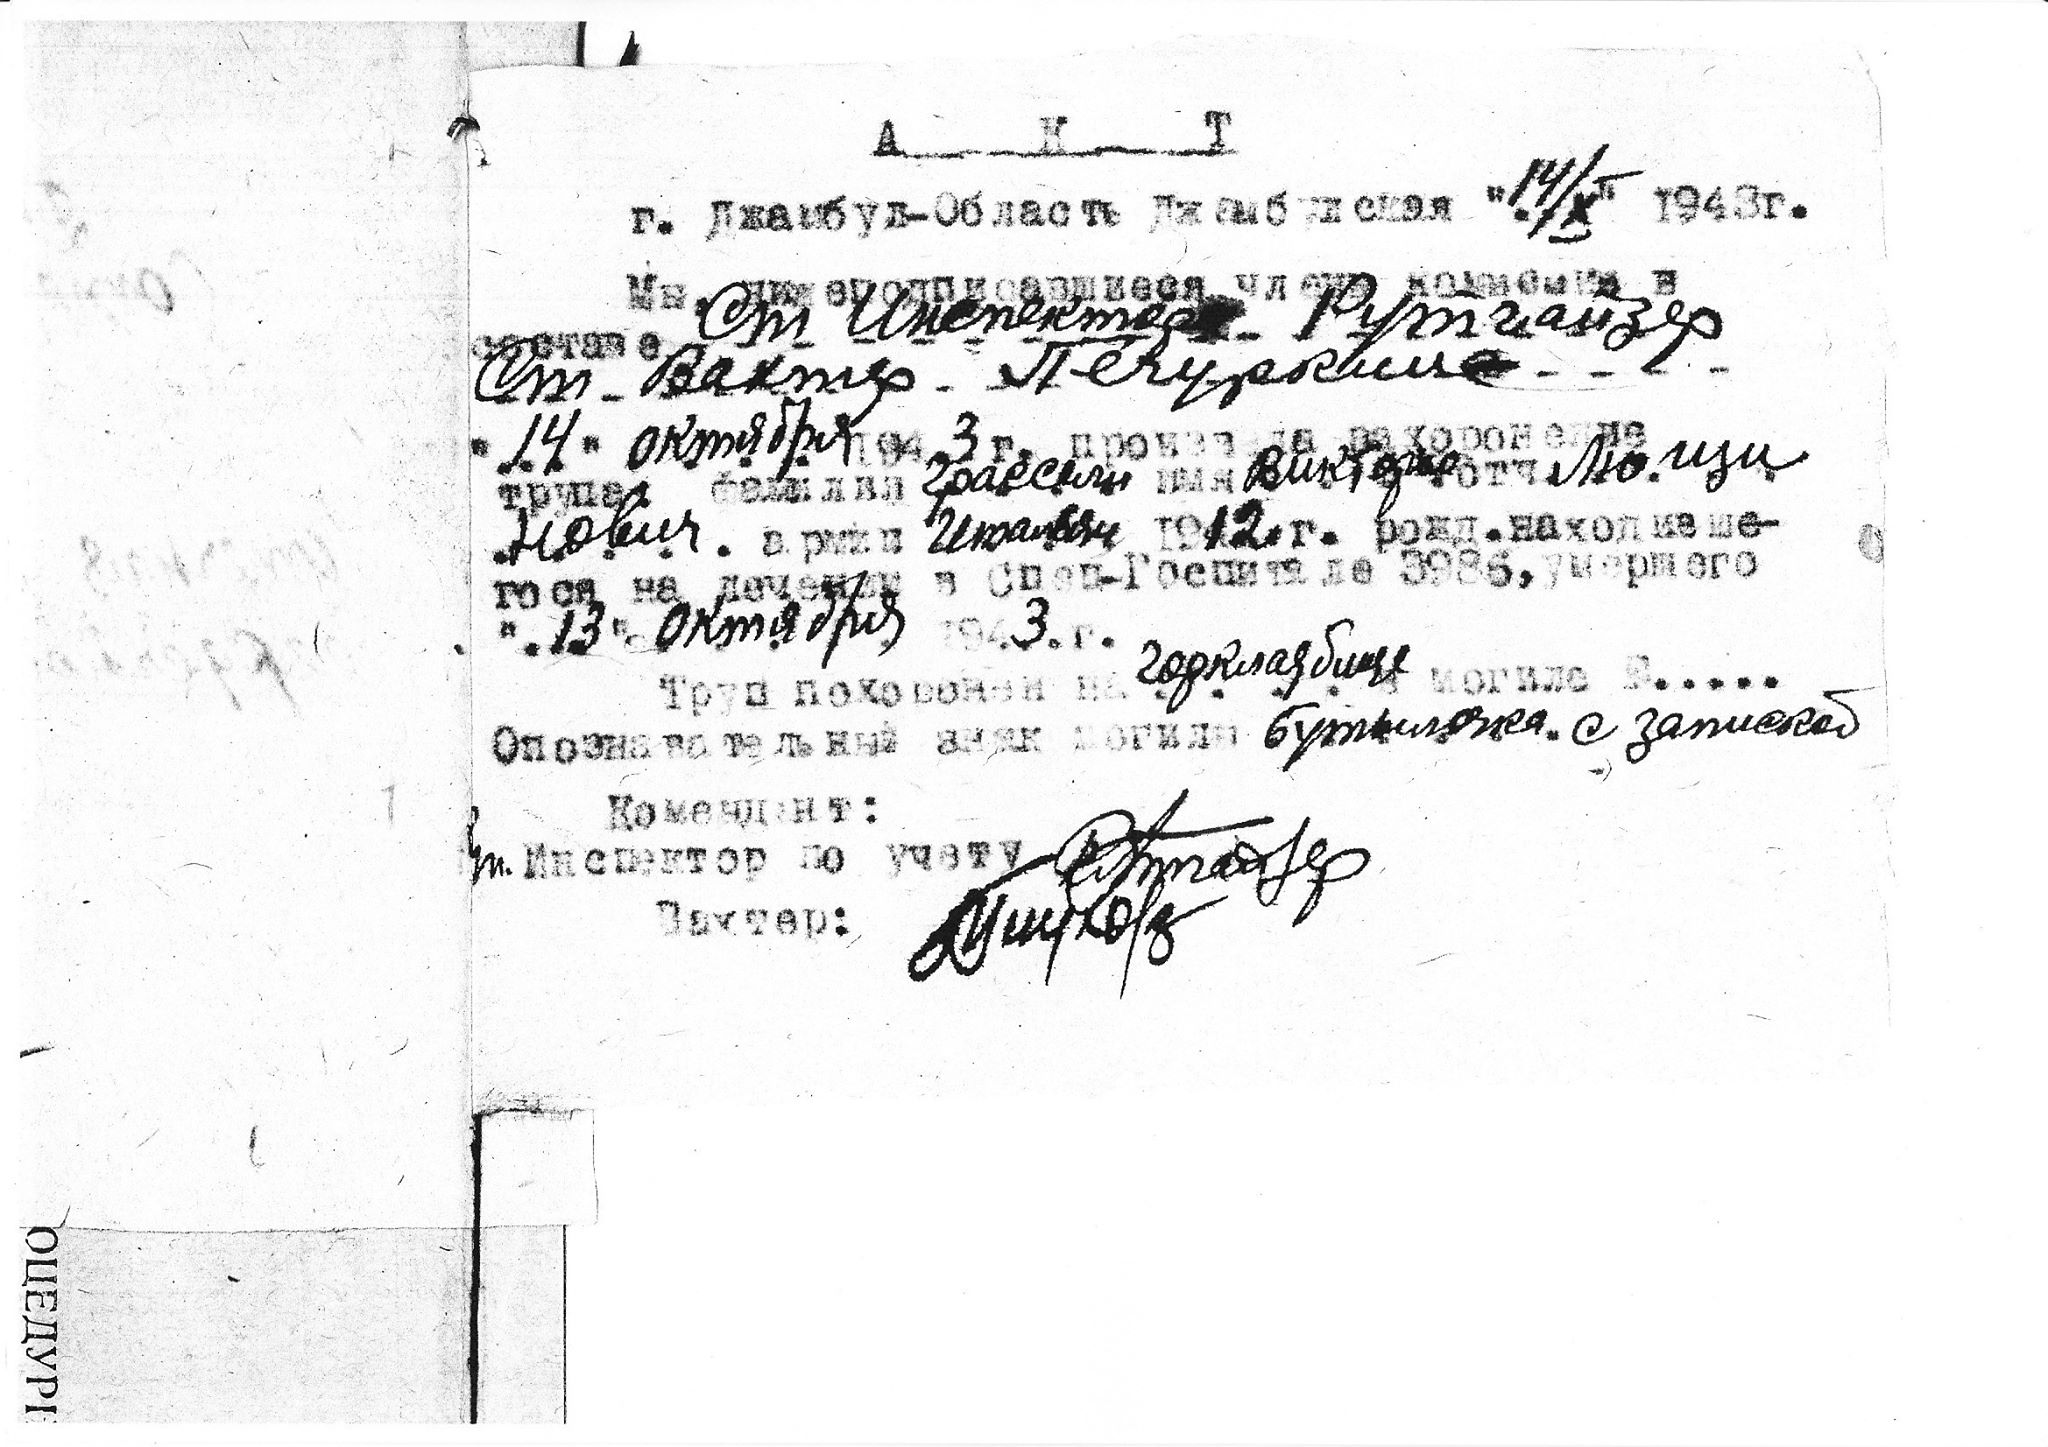 А К Т
г. Джамбул-Область Джамбулская "14/X" 1943г.
Мы, нижеподписавшиеся члены комиссии в
составе Ст Инспектор Рутгайзер
Ст Вахтер Печуркина
"14" октября 1943 г. произвела захоронение
трупа: фамилия Грассели имя Викторио отч. Люцци
нович. армии Итальян 1912.г. рожд.находивше-
гося на лечении в Спец-Госпитале 3986,умершего
"13" октября 1943.г.
Труп похоронен на горкладбище в могиле №.....
Опознавательный знак могилы бутылочка с запиской
Комендант:
Инспектор по учету Рутгайзер
Вахтер:
ОЦЕДУРН